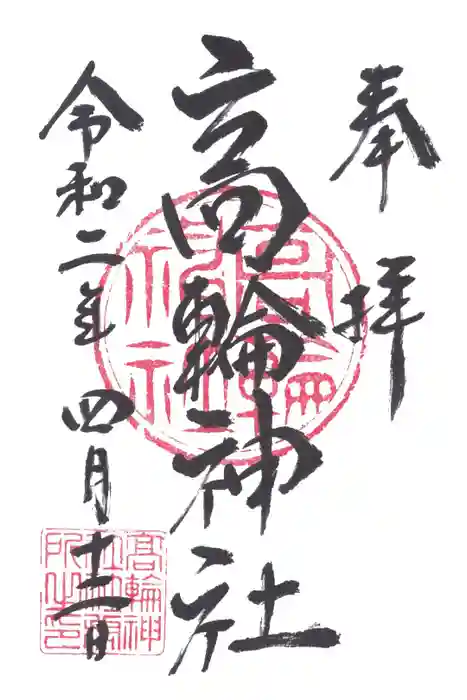 奉拝
高輪神社
令和二年四月十二日
高輪
神社
髙輪神
社社務
所之印